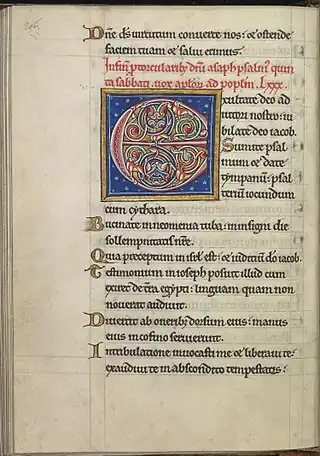 Dñe ds̄ uirtutum conuerte nos: & ostende
faciem tuam & salui erimus.
In finē ꝓ torcularibꝫ dñi asaph psalmꝰ quin
ta sabbati. uox aplōꝝ ad poplm̄. Lxxx.
Exultate deo ad
iutori nostro: iu
bilate deo iacob.
Sumite psal
mum & date
tympanū: psal
teriū iocundum
cum cythara.
Bucinate in neomenia tuba: in insigni die
sollempnitatis nr̄e.
Quia preceptum in isrl̄ est: & iudiciū dō iacob.
Testimonium in ioseph posuit illud cum
exiret de t̄ra egypti: linguam quam non
nouerat audiuit.
Diuertit ab oneribꝫ dorsum eius: manus
eius in cofino seruierunt.
In tribulatione inuocasti me & liberaui te:
exaudiui te in abscondito tempestatis: